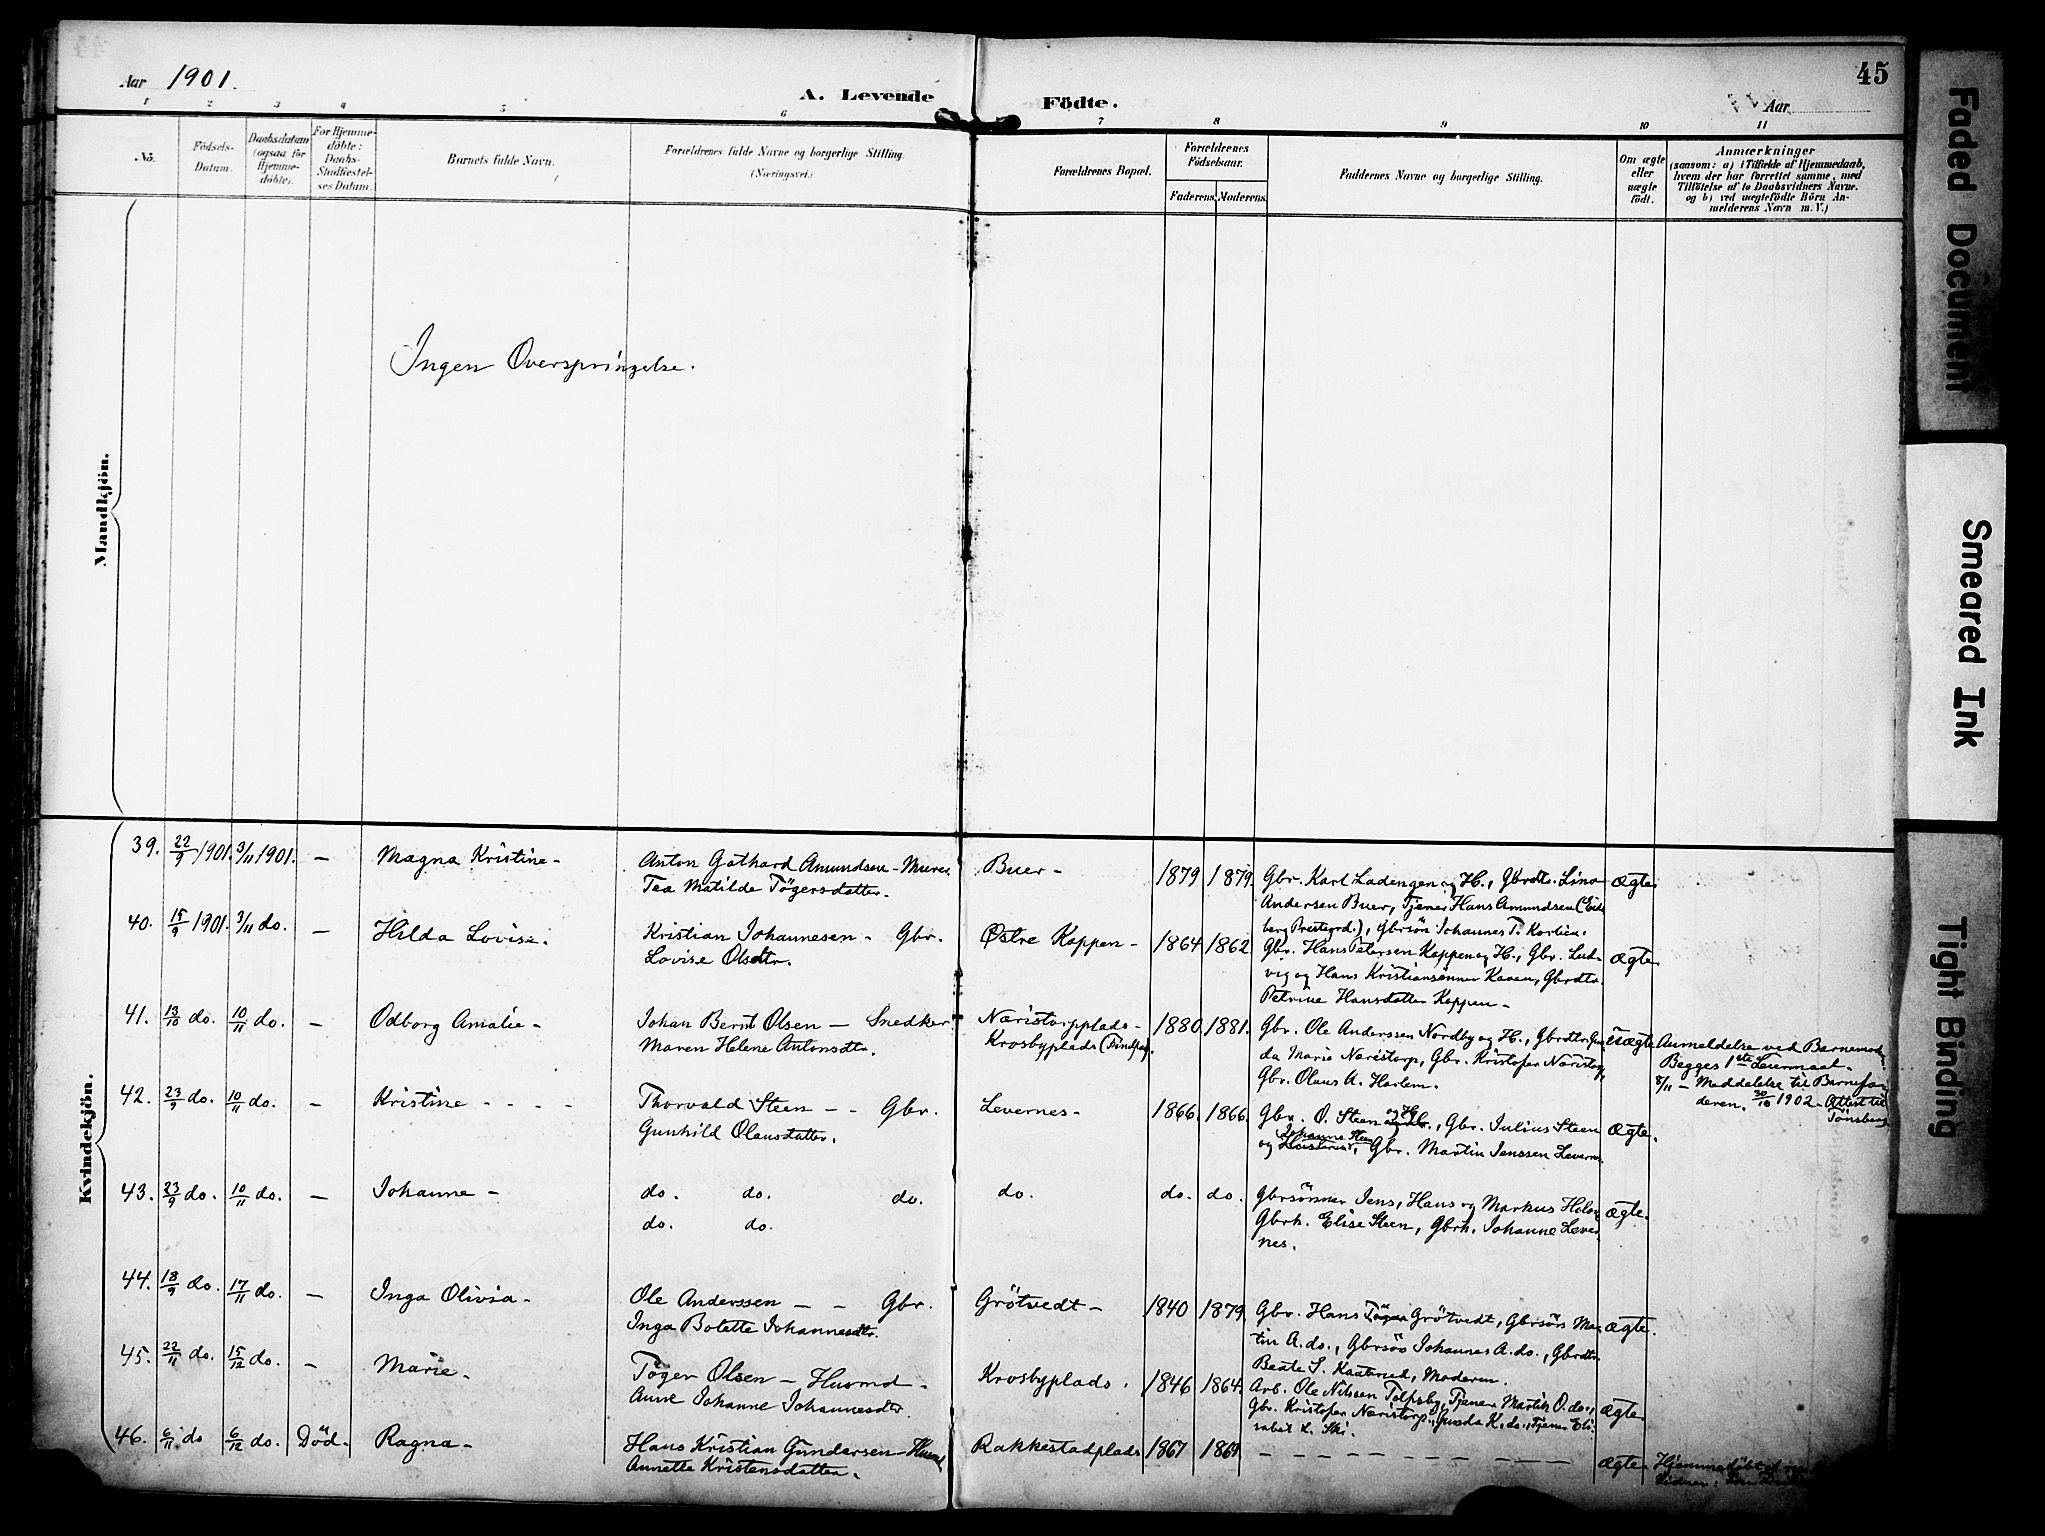 Aar 1901.
A. Levende Födte.
Aar
45
1 2 3 4 5 6 7 8 9 10 11
No.
Födsels-Datum.
Daabsdatum (ogsaa for Hjemme-döbte).
For Hjemme-döbte: Daabs-Stadfæstel-ses Datum.
Barnets fulde Navn.
Forældrenes fulde Navne og borgerlige Stilling.
(Næringsvei.)
Forældrenes Bopæl.
Forældrenes Födselsaar.
Faderens. Moderens.
Faddernes Navne og borgerlige Stilling.
Om ægte eller uægte födt.
Anmærkninger
(saasom: a) i Tilfælde af Hjemmedaab,
hvem der har forrettet samme, med
Tilföielse af to Daabsvidners Navne.
og b) ved uægtefödte Börn An-
melderens Navn m. V.)
Mandkjön.
Ingen Overspringelse.
Kvindekjön.
39. 22/9 1901. 3/11 1901. — Magna Kristine - Anton Gothard Amundsen - Murer Buer - 1879 1879. Gbr. Karl Ladengen og H., Gbrdtr. Lina ægte
Tea Matilde Tögersdatter. Andersen Buer, Tjener Hans Amundsen (Eids
berg Prestegrd.), Gbrsön Johannes T.
40. 15/9 1901. 3/11 do. — Hilda Lovise. Kristian Johannesen - Gbr. Østre Kappen - 1864 1862 Gbr. Hans Petersen Kappen og H., Gbr. Lud- ægte
Lovise Olsdtr. vig og Hans Kristiansönner Gbrdtr.
Petrine Hansdatter Kappen -
41. 13/10 do. 10/11 do. — Odborg Amalie - Johan Bernt Olsen — Snedker Næristorpplads - 1880. 1881. Gbr. Ole Anderssen Nordby og H., Gbrdtr. Gun- Uægte Anmeldelse ved Barnemod.
Maren Helene Antonsdtr. Krosbyplads da Marie Næristorp, Gbr. Kristofer Næristorp, Begges 1ste Leiermaal.
Gbr. Olaus A. Harlem. 8/11 - Meddelelse til Barnefa-
deren. 30/10 1902 - Attest til
Tönsberg
42. 23/9 do. 10/11 do. — Kristine - - - - Thorvald Steen - - Gbr. Levernes - 1866. 1866. Gbr. O. Steen og H., Gbr. Julius Steen ægte.
Gunhild Olausdatter. og Johanne Steen, Gbr. Martin Jenssen Levernes
43. 23/9 do. 10/11 do. — Johanne - do. do. do. do. do. do. Gbrsönner Jens, Hans og Markus ægte.
do. do. Gbrk. Elise Steen, Gbrk. Johanne Lever-
nes.
44. 18/9 do. 17/11 do. — Inga Olivia - Ole Anderssen - - Gbr. Grötvedt - 1840 1879 Gbr. Hans Töger Grötvedt, Gbrsön Mar- ægte.
Inga Bolette Johannesdtr. tin A. do., Gbrsön Johannes A. do., Gbrdtr.
Beate S. Kaabrud, Moderen.
45. 22/11 do. 15/12 do. — Marie - Töger Olsen - Husmd - Krosbyplads. 1846 1864. Arb. Ole Nilsen Tolpsby, Tjener Martin O. do., ægte.
Anne Johanne Johannesdtr. Gbr. Kristofer Næristorp, K. do., Tjener Eli-
sabet L. Ski.
46. 6/11 do 6/12 do. Död. Ragna - Hans Kristian Gundersen - Husmd Rakkestadplads 1867 1869 — — — — ægte. Hjemmedöbt af
Annette Kristensdatter. Vidner:
Faded Document
Smeared Ink
Tight Binding